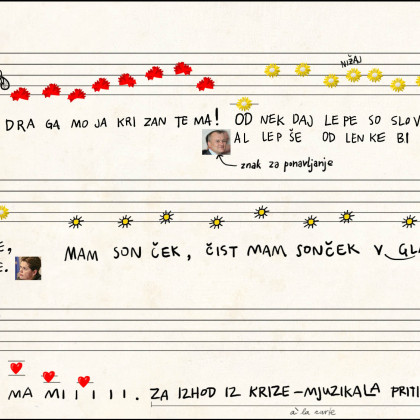 NIŽAJ
DRAGA MOJA KRIZANTEMA! OD NEKDAJ LEPE SO SLOV
AL LEPŠE OD LENKE BI
znak za ponavljanje
E, MAM SONČEK, ČIST MAM SONČEK V GLA
E.
MAMIIIII. ZA IZHOD IZ KRIZE-MJUZIKALA PRITI